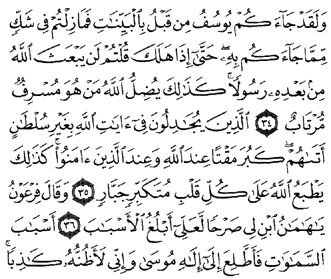 وَلَقَدْ جَآءَكُمْ يُوسُفُ مِن قَبْلُ بِٱلْبَيِّنَٰتِ فَمَازِلْتُمْ فِى شَكٍّ
مِّمَّا جَآءَكُم بِهِۦ حَتَّىٰٓ إِذَا هَلَكَ قُلْتُمْ لَن يَبْعَثَ ٱللَّهُ
مِنۢ بَعْدِهِۦ رَسُولًا ۚ كَذَٰلِكَ يُضِلُّ ٱللَّهُ مَنْ هُوَ مُسْرِفٌ
مُّرْتَابٌ ٣٤ ٱلَّذِينَ يُجَٰدِلُونَ فِىٓ ءَايَٰتِ ٱللَّهِ بِغَيْرِ سُلْطَٰنٍ
أَتَىٰهُمْ ۖ كَبُرَ مَقْتًا عِندَ ٱللَّهِ وَعِندَ ٱلَّذِينَ ءَامَنُوا۟ ۚ كَذَٰلِكَ
يَطْبَعُ ٱللَّهُ عَلَىٰ كُلِّ قَلْبِ مُتَكَبِّرٍ جَبَّارٍ ٣٥ وَقَالَ فِرْعَوْنُ
يَٰهَٰمَٰنُ ٱبْنِ لِى صَرْحًا لَّعَلِّىٓ أَبْلُغُ ٱلْأَسْبَٰبَ ٣٦ أَسْبَٰبَ
ٱلسَّمَٰوَٰتِ فَأَطَّلِعَ إِلَىٰٓ إِلَٰهِ مُوسَىٰ وَإِنِّى لَأَظُنُّهُۥ كَٰذِبًا ۚ